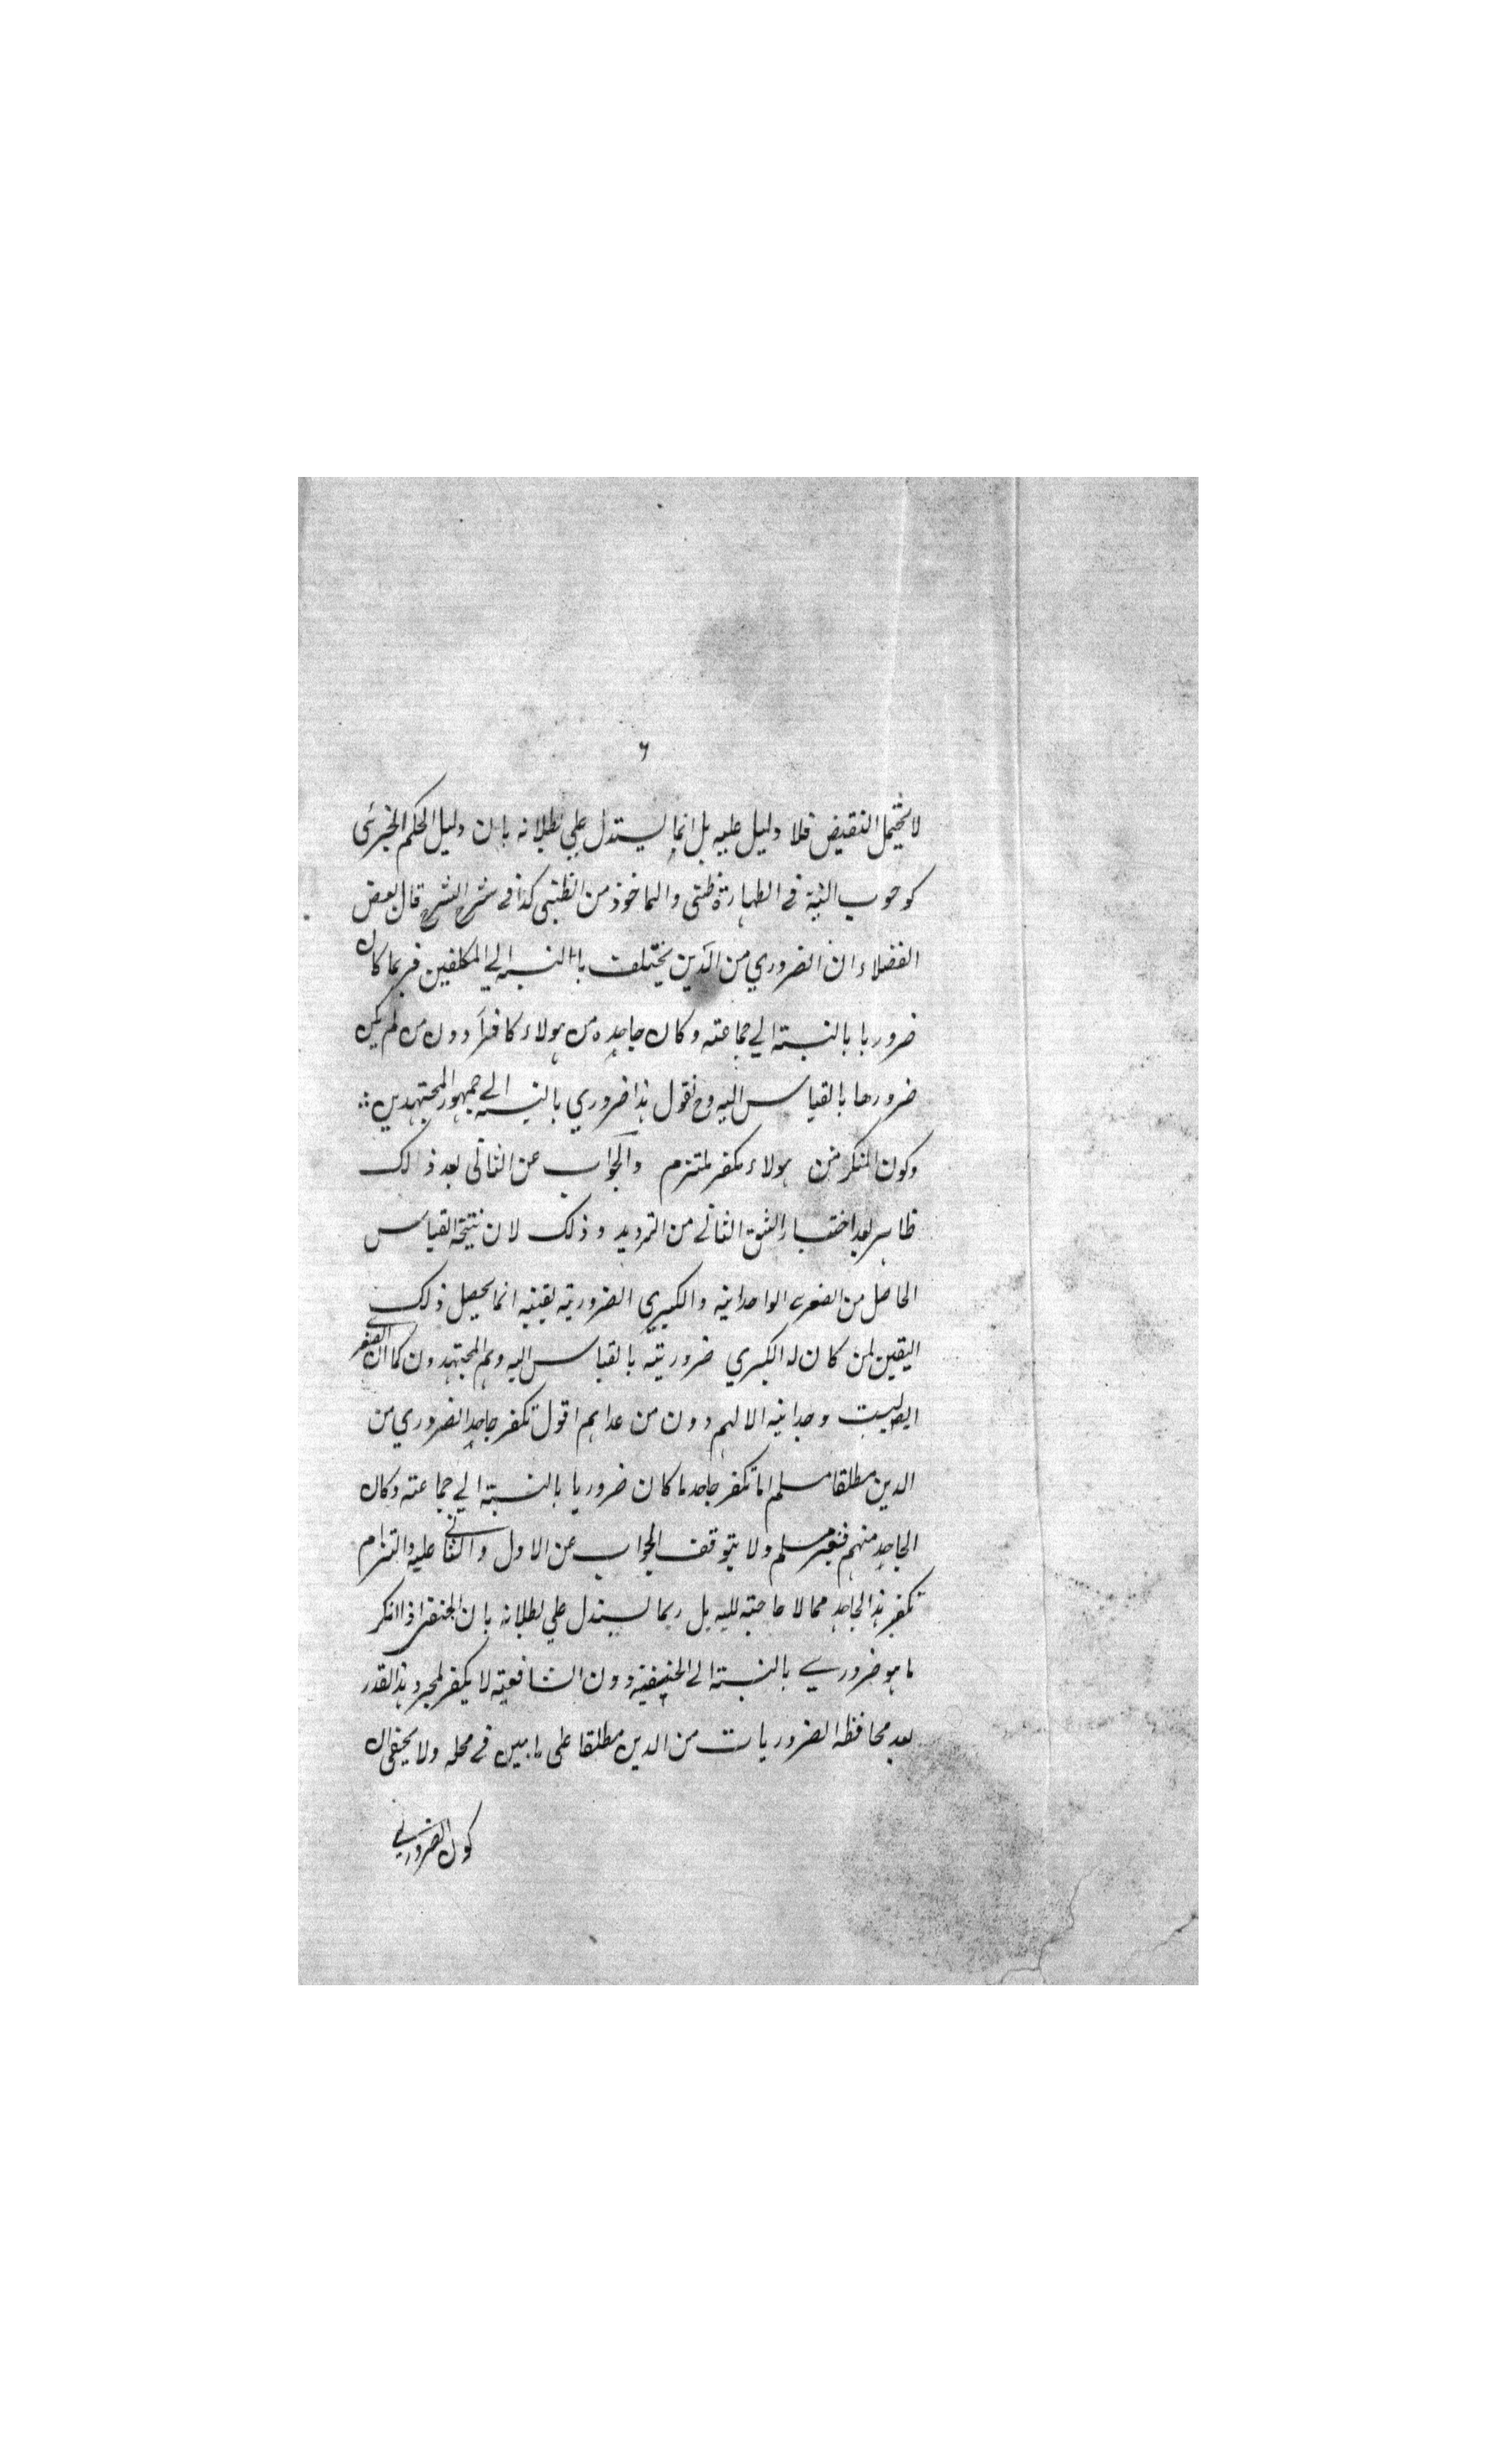 ٦
لا يحتمل النقيض فلا دليل عليه بل انما يستدل علي بطلانه بان دليل الحكم الجزئى
كوجوب النية في الطهارة ظنى والماخوذ من الظنى كذا في شرح الشرح قال بعض
الفضلاء ان الضروري من الدين يختلف باالنسبه الي المكلفين فربما كان
ضروريا بالنسبته الي جماعته وكان جاحده من هولاء كافرا دون من لم يكن
ضروريا بالقياس اليه وح نقول هذا ضروري بالنسبه الي جمهور المجتهدين ∴
وكون المنكر من هولاء مكفر ملتزم والجواب عن الثانى بعد ذالك
ظاهر بعد اختيار الشق الثاني من الترديد وذلك لان نتيجة القياس
الحاصل من الصغرى الواحدانيه والكبري الضروريته يقينيه انما يحصل ذلك
اليقين لمن كان له الكبري ضروريته بالقياس اليه وهم المجتهدون كما ان الصغرى
ايضا ليست وجدانيه الا لهم دون من عداهم اقول تكفر جاحد الضروري من
الدين مطلقا مسلم اما تكفر جاحد ما كان ضروريا بالنسبته الي جماعته وكان
الجاحد منهم فغير مسلم ولا يتوقف الجواب عن الاول والثانى عليه والتزام
تكفير هذ الجاحد مما لا حاجته اليه بل ربما يستدل علي بطلانه بان الحنفى اذا انكر
ما هو ضروري بالنسبته الى الحنيفية دون الشافعيته لا يكفر لمجرد هذ القدر
بعد محافظه الضروريات من الدين مطلقا على ما بين في محله ولا يخفى ان
كون الضروري